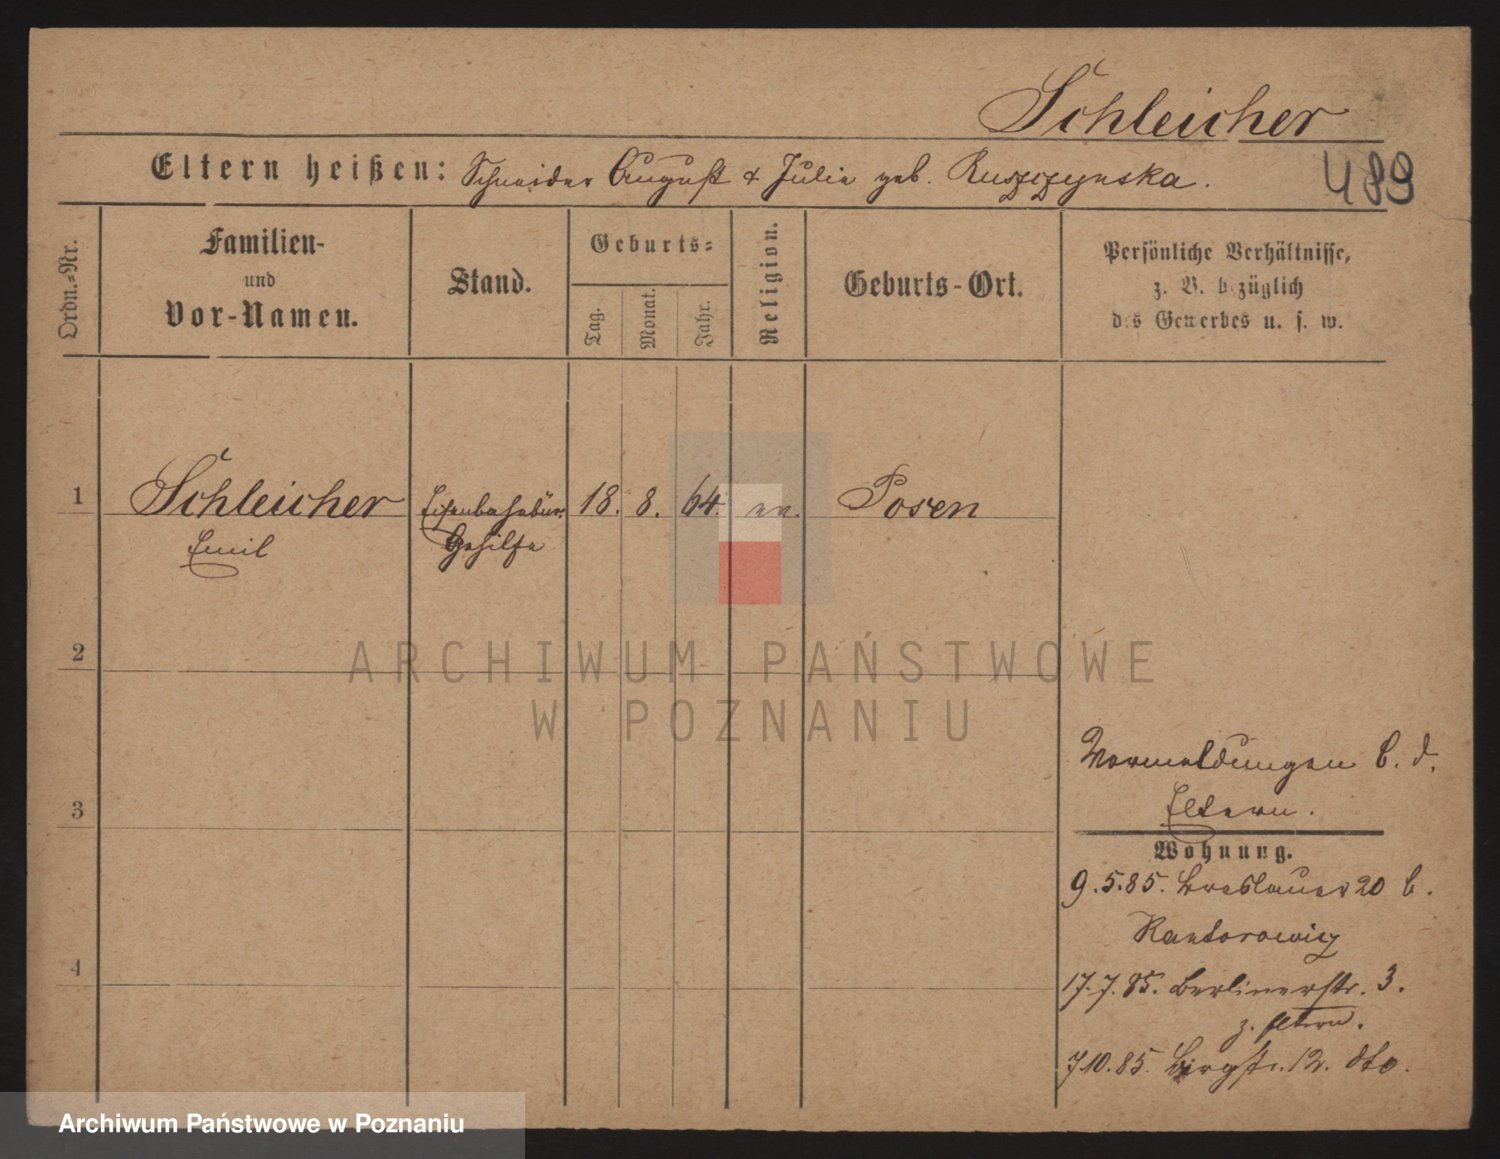 Schleicher
489
Eltern heißen: Schneider August & Julie geb. Ruszczynska.
Ordn.-Nr.
Familien-
und
Vor-Namen.
Stand.
Geburts-
Tag.
Monat.
Jahr.
Religion.
Geburts-Ort.
Persönliche Verhältnisse,
z. B. bezüglich
des Gewerbes u. s. w.
1
Schleicher
Emil
Eisenbahnbür.
Gehilfe
18. 8. 64. ev. Posen
2
ARCHIWUM PAŃSTWOWE
W POZNANIU
3
Vormeldungen b. d.
Eltern.
Wohnung.
9.5.85. Breslauer 20 b.
Kantorowicz
4
17.7.85. Berlinerstr. 3.
z. Eltern.
7.10.85. Bergstr. 12. dto.
Archiwum Państwowe w Poznaniu